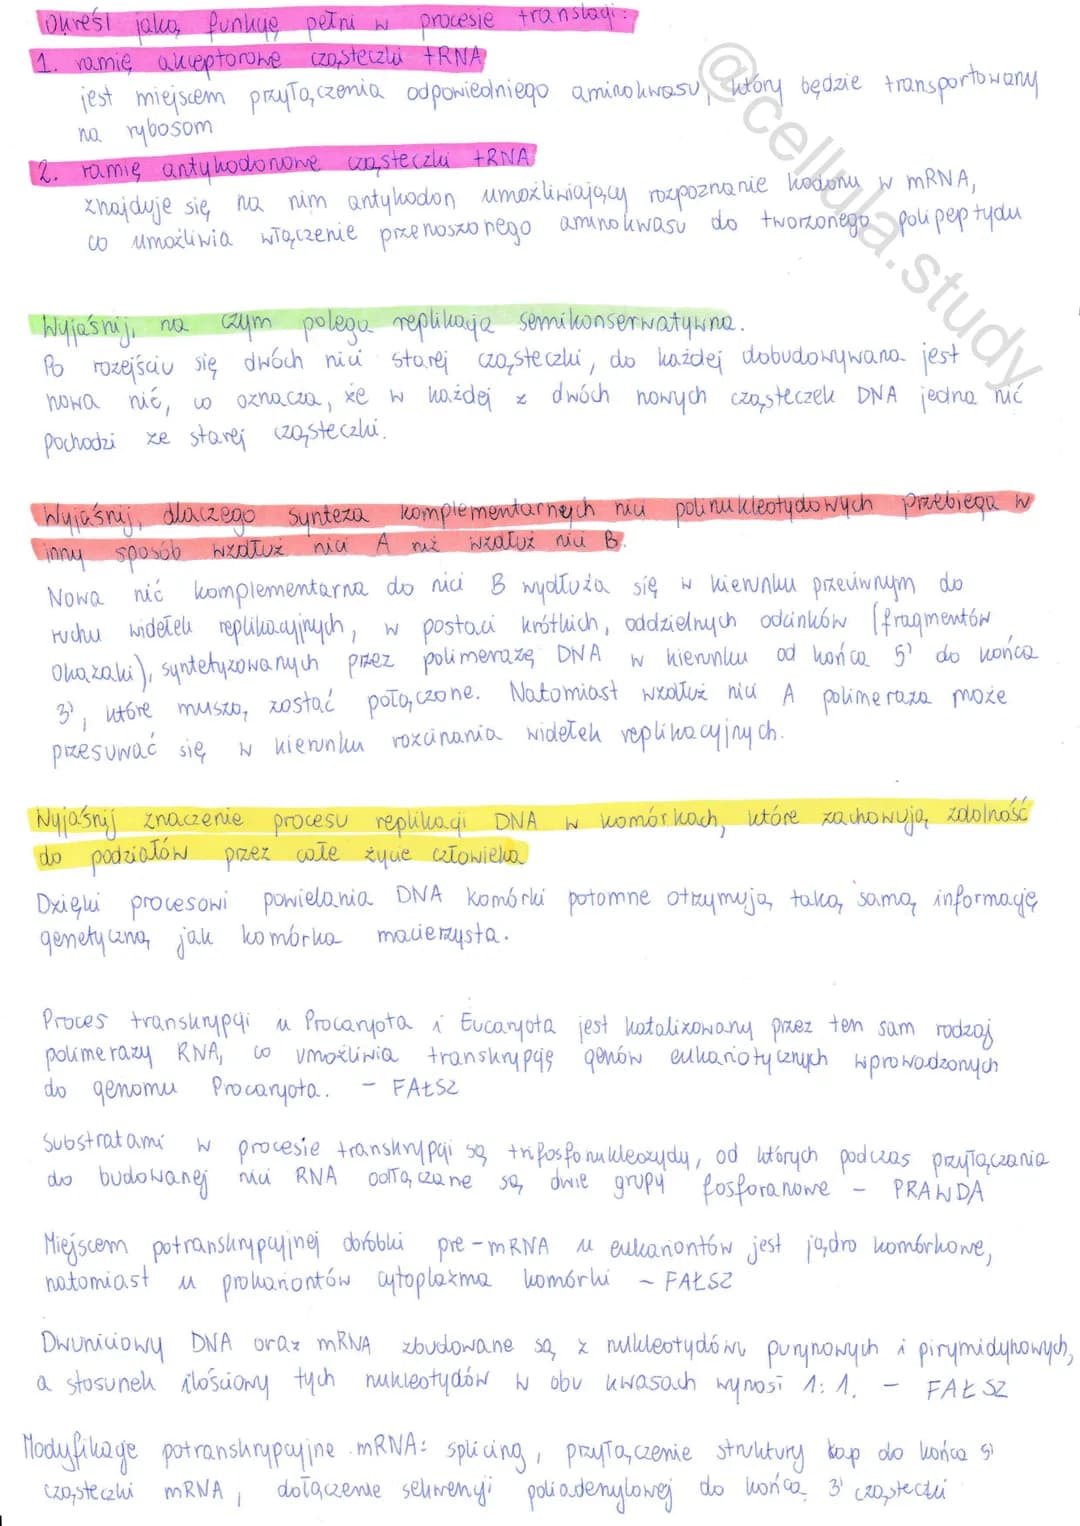 Określ jaką funkcję pełni w procesie translacji:
1. ramię akceptorowe cząsteczki tRNA
jest miejscem przyłączenia odpowiedniego aminokwasu, który będzie transportowany
na rybosom
2. ramię antykodonowe cząsteczki tRNA
znajduje się na nim antykodon umożliwiający rozpoznanie kodonu w mRNA,
co umożliwia włączenie przenoszonego aminokwasu do tworzonego polipeptydu
@cellula.study
Wyjaśnij, na czym polega replikacja semikonserwatywna.
Po rozejściu się dwóch nici starej cząsteczki, do każdej dobudowywana jest
nowa nić, co oznacza, że w każdej z dwóch nowych cząsteczek DNA jedna nić
pochodzi ze starej cząsteczki.
Wyjaśnij, dlaczego synteza komplementarnych nici polinukleotydowych przebiega w
inny sposób wzdłuż nici A niż wzdłuż nici B.
Nowa nić komplementarna do nici B wydłuża się w kierunku przeciwnym do
ruchu widełek replikacyjnych, w postaci krótkich, oddzielnych odcinków (fragmentów
Okazaki), syntetyzowanych przez polimerazę DNA w kierunku od końca 5' do końca
3', które muszą zostać połączone. Natomiast wzdłuż nici A polimeraza może
przesuwać się w kierunku rozcinania widełek replikacyjnych.
Wyjaśnij znaczenie procesu replikacji DNA w komórkach, które zachowują zdolność
do podziałów przez całe życie człowieka
Dzięki procesowi powielania DNA komórki potomne otrzymują taką samą informację
genetyczną jak komórka macierzysta.
Proces transkrypcji u Procaryota i Eucaryota jest katalizowany przez ten sam rodzaj
polimerazy RNA, co umożliwia transkrypcję genów eukariotycznych wprowadzonych
do genomu Procaryota. - FAŁSZ
Substratami w procesie transkrypcji są trifosfonukleozydy, od których podczas przyłączania
do budowanej nici RNA odłączane są dwie grupy fosforanowe - PRAWDA
Miejscem potranskrypcyjnej obróbki pre-mRNA u eukariontów jest jądro komórkowe,
natomiast u prokariontów cytoplazma komórki - FAŁSZ
Dwuniciowy DNA oraz mRNA zbudowane są z nukleotydów purynowych i pirymidynowych,
a stosunek ilościowy tych nukleotydów w obu kwasach wynosi 1:1. - FAŁSZ
Modyfikacje potranskrypcyjne mRNA: splicing, przyłączenie struktury kap do końca 5'
cząsteczki mRNA, dołączenie sekwencji poliadenylowej do końca 3' cząsteczki